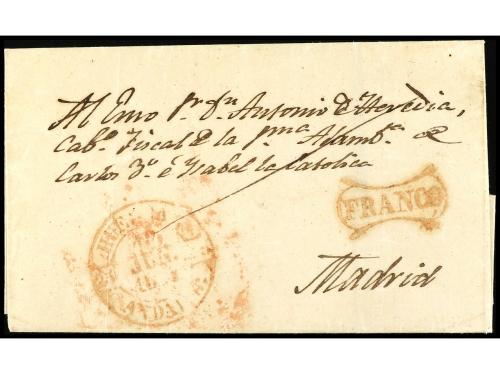 Al Emo Sr. Dn Antonio de Heredia,
Cabo Fiscal de la pma Asamba de
Carlos 3o é Ysabel la Catolica
FRANCO
JUN
Madrid